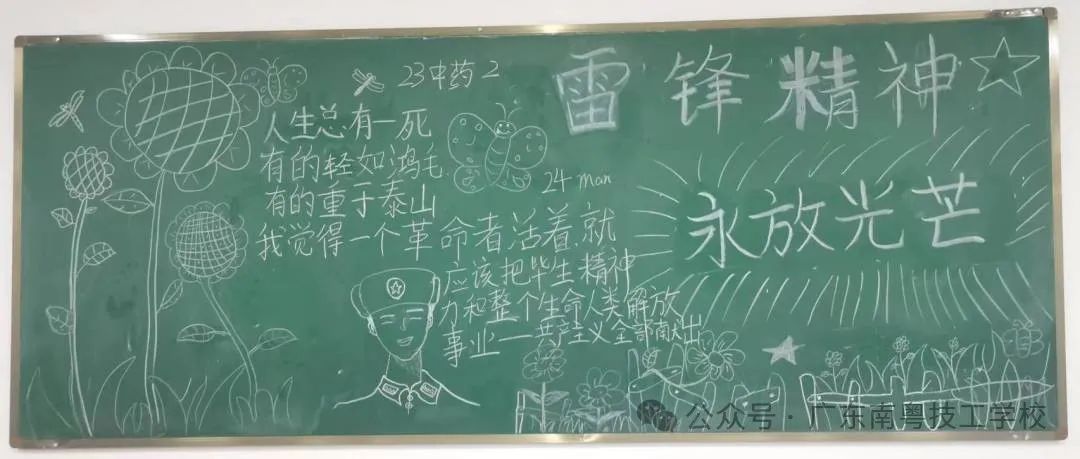 23中药2
雷锋精神
人生总有一死
有的轻如鸿毛
有的重于泰山
24 man
永放光芒
我觉得一个革命者活着就
应该把毕生精神
力和整个生命人类解放
事业——共产主义全部献出
公众号·广东南粤技工学校